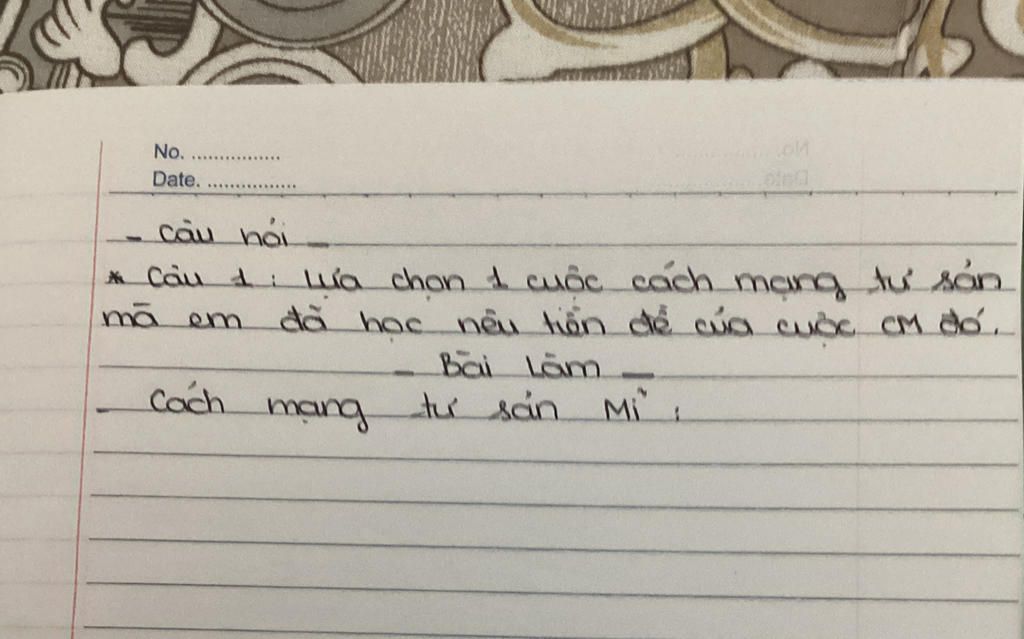 No. ................
Date. ................
- Câu hỏi -
* Câu 1 : Lựa chọn 1 cuộc cách mạng tư sản
mà em đã học nêu tiền đề của cuộc CM đó.
- Bài Làm -
- Cách mạng tư sản Mĩ :